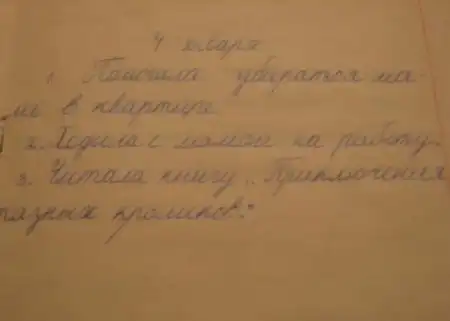 4 марта
1. Помогала убератся ма-
ме в квартире
2. Ходила с мамой на работу.
3. Читала книгу „Приключения
разных кроликов."